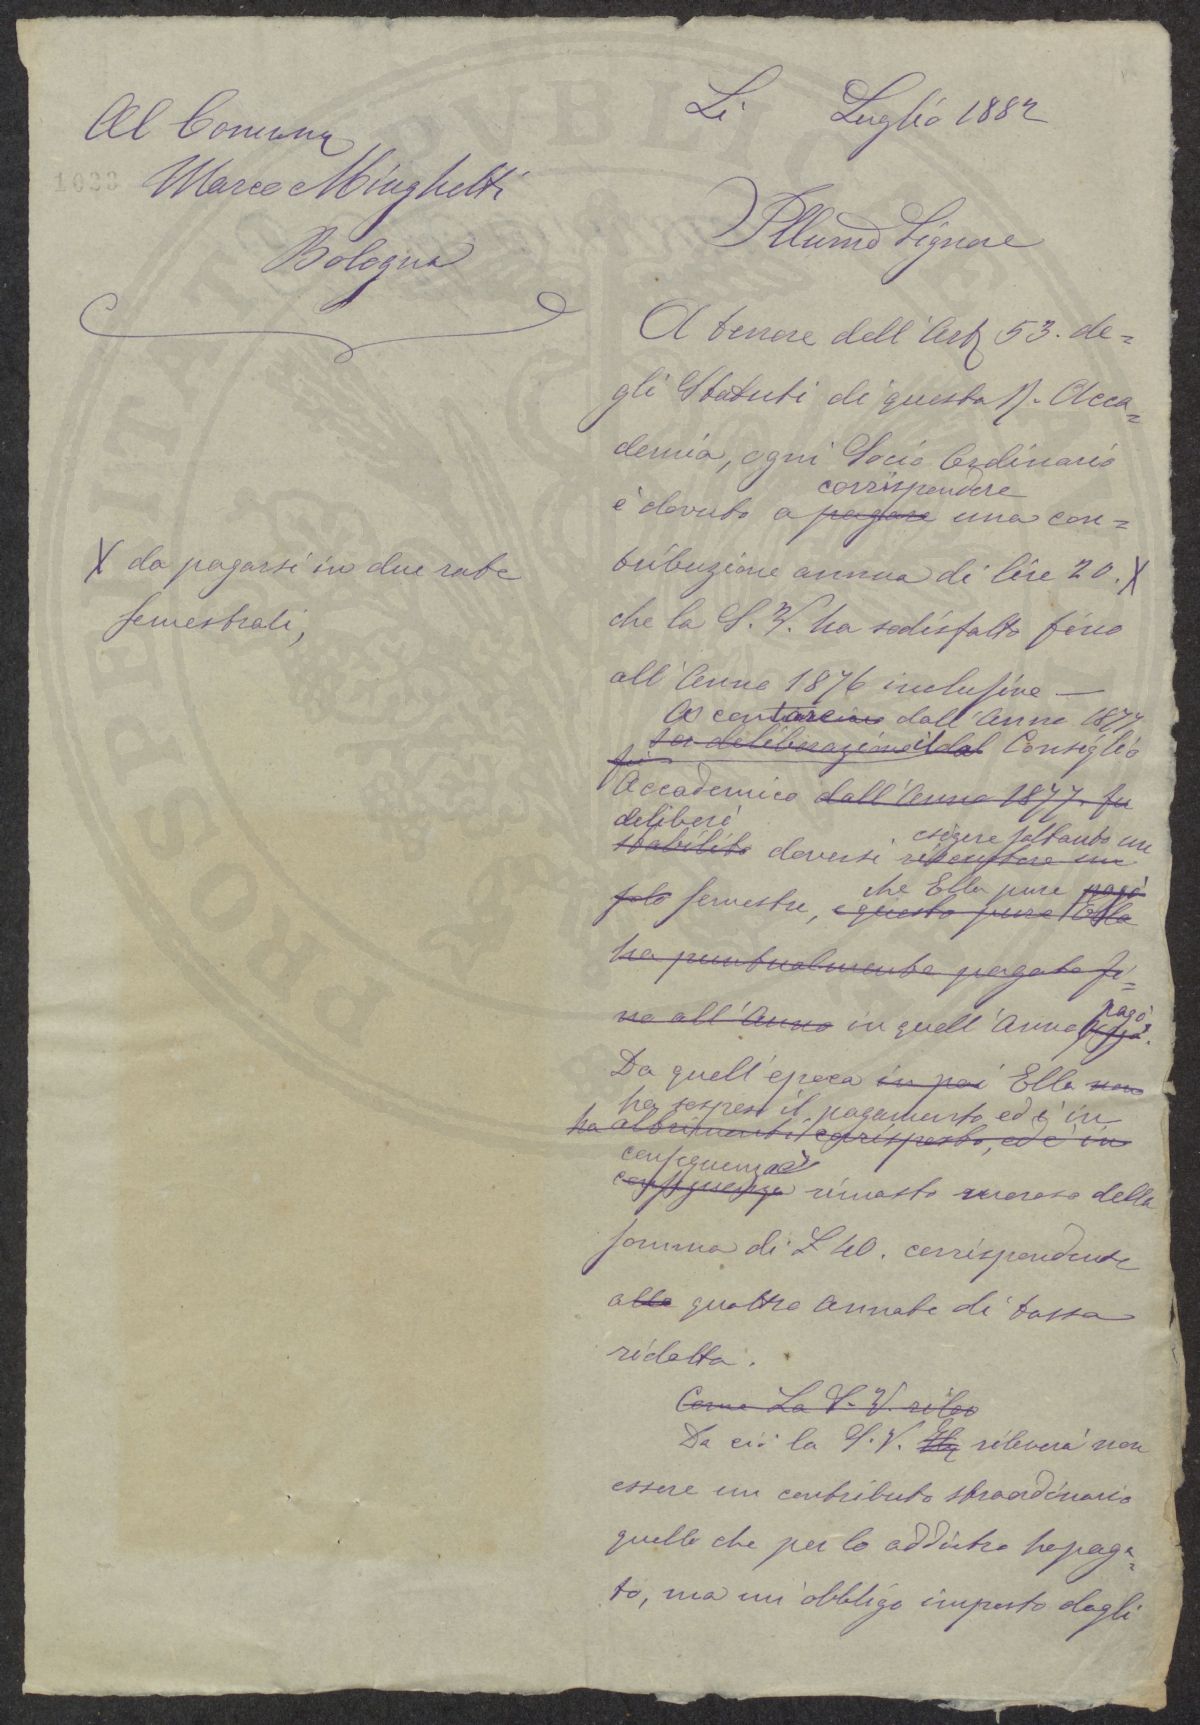 Al Comune
Marco Minghetti
Bologna
1033
Li Luglio 1882
Illumo Signore
A tenore dell'Art 53. de=
gli Statuti di questa R. Acca=
demia, ogni Socio Ordinario
corrispondere
è dovuto a pagare una con=
tribuzione annua di lire 20. X
X da pagarsi in due rate
semestrali,
che la S. V. ha sodisfatto fino
all'Anno 1876 inclusive —
A contare dall'Anno 1877
per deliberazione il dal Consiglio
fu
Accademico dall'Anno 1877. fu
deliberò
stabilito doversi riscuotere un
esigere soltanto un
solo semestre, e questo pure Ella
che Ella pure pagò
ha puntualmente pagato fi=
no all'Anno in quell'Anno
pagò
Da quell'epoca in poi Ella non
ha sospeso il pagamento ed è in
ha altrimenti corrisposto, ed è in
conseguenza
conseguenza rimasto moroso della
somma di L 40. corrispondente
alle quattro Annate di tassa
ridotta.
Come La S. V. rile
Da ciò la S. V. rileverà non
essere un contributo straordinario
quello che per lo addietro ha paga=
to, ma un'obbligo imposto dagli